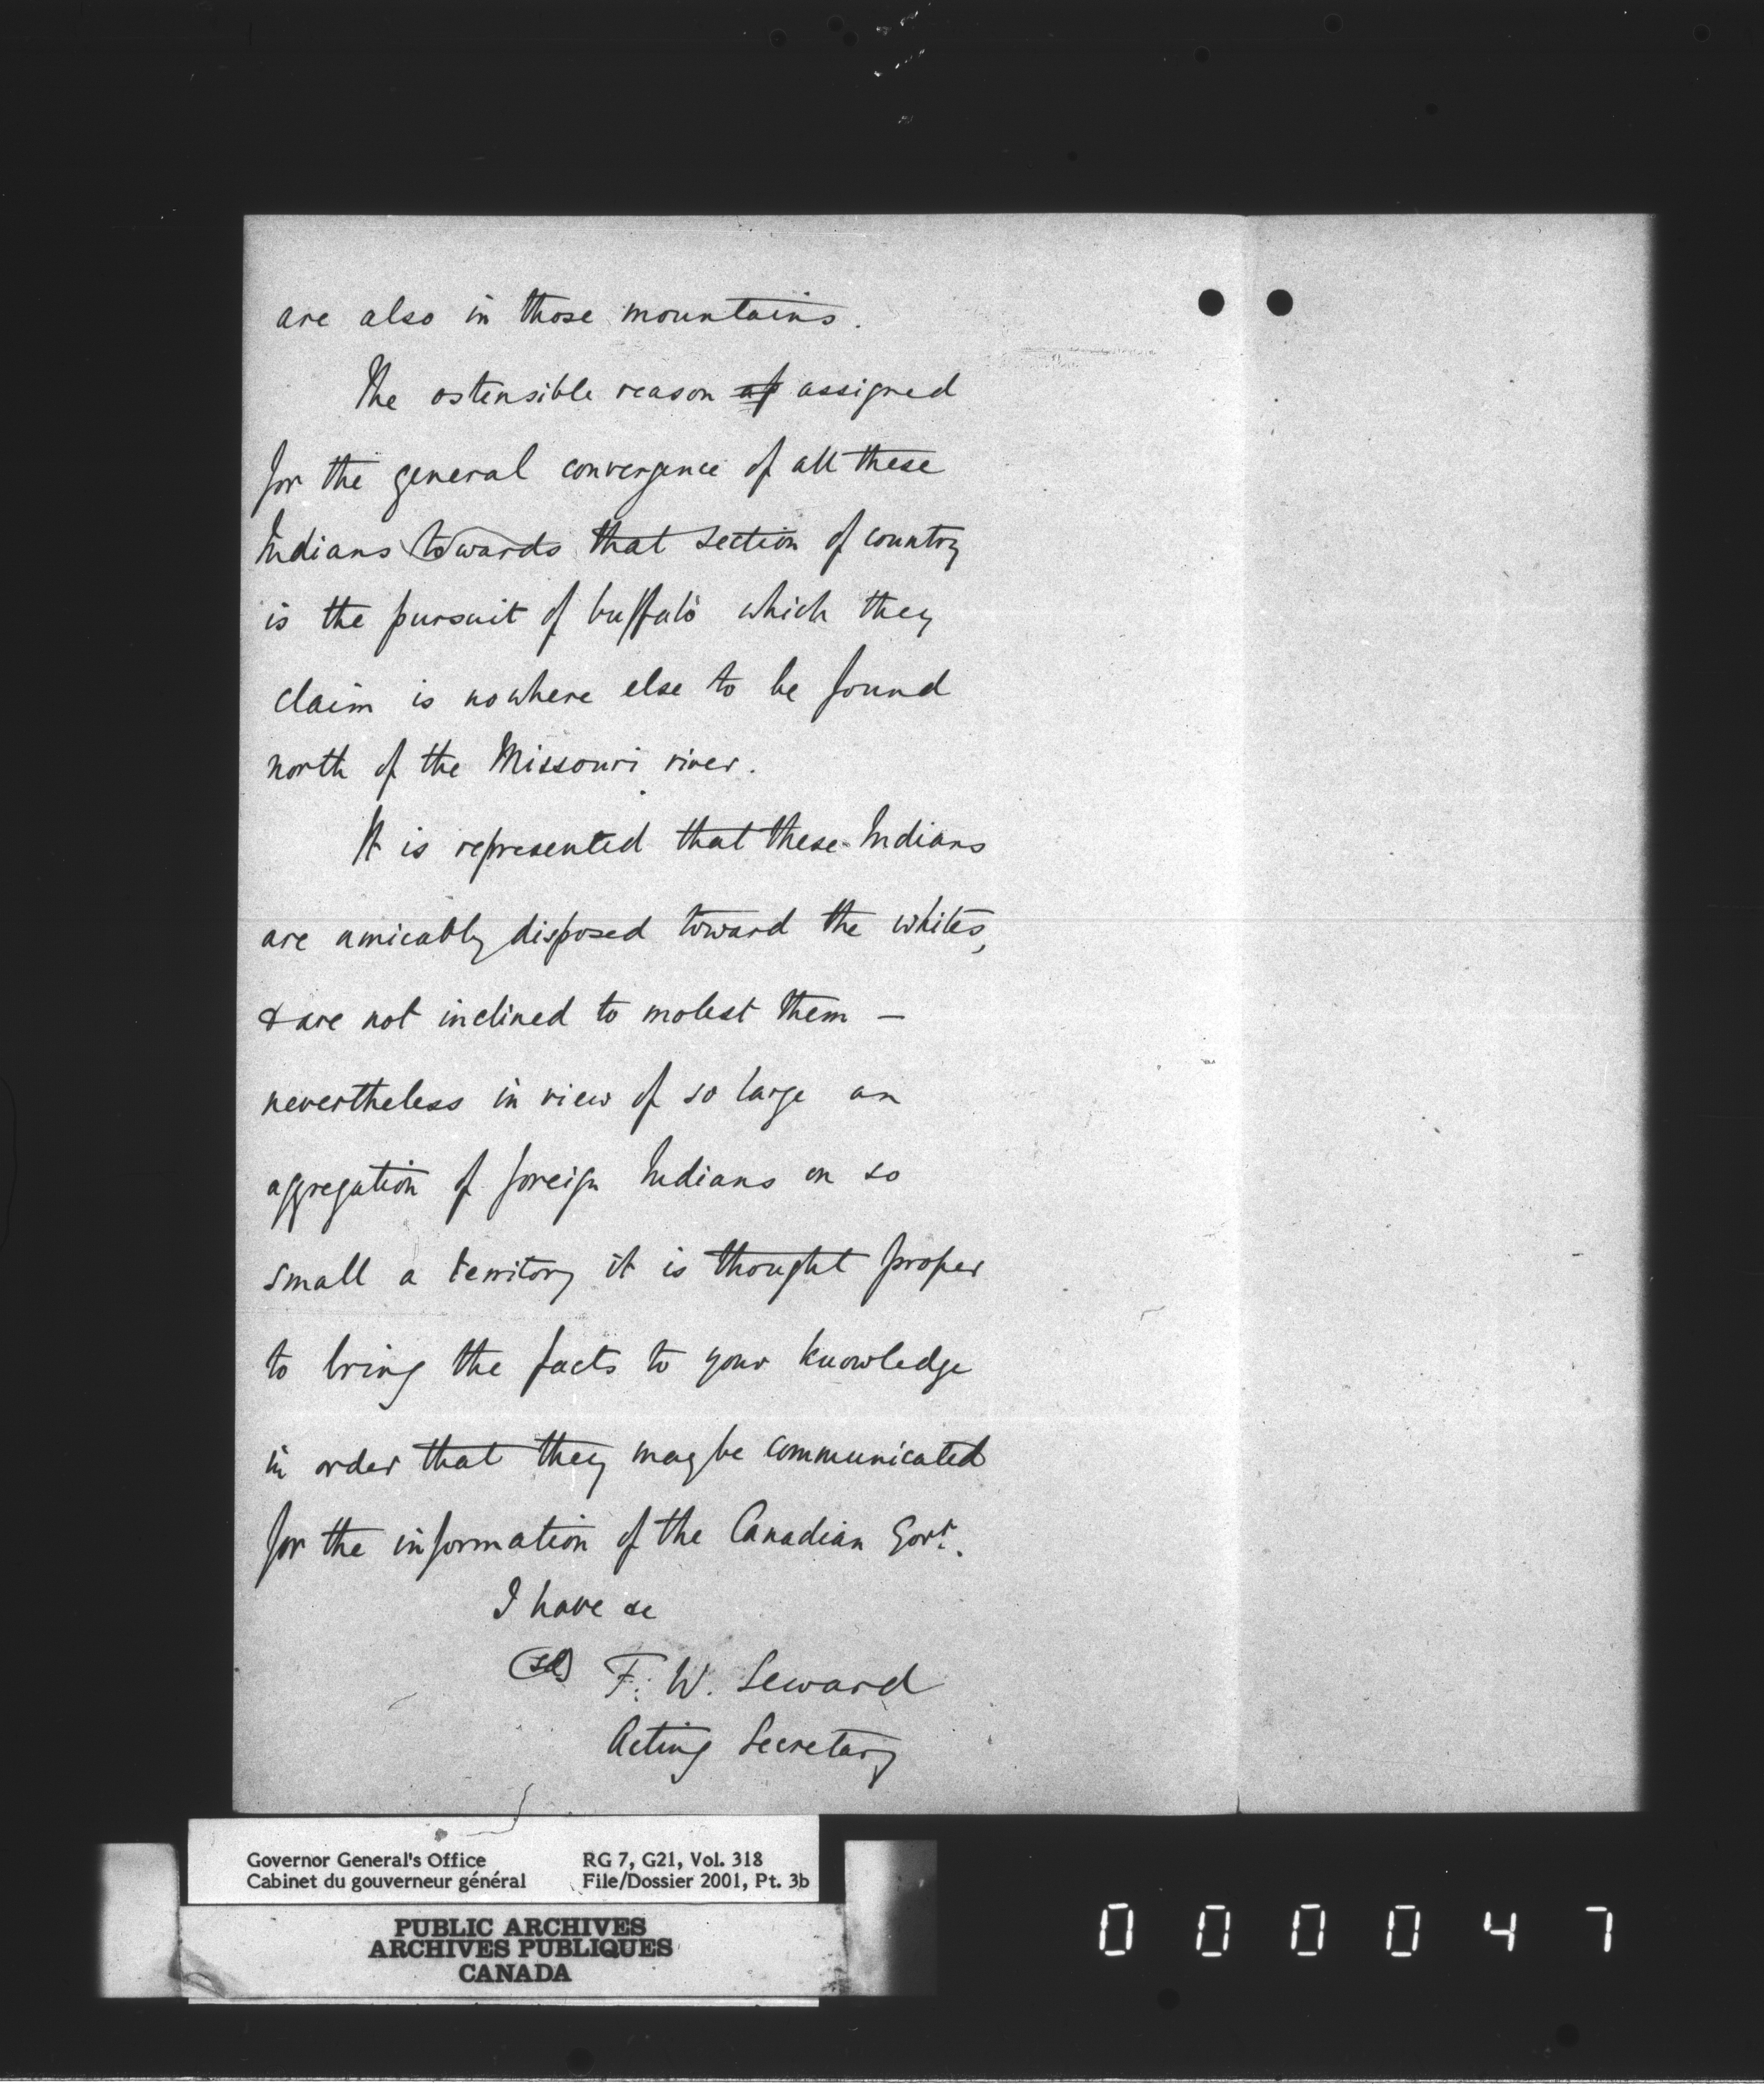 are also in those mountains.
The ostensible reason of assigned
for the general convergence of all these
Indians towards that section of country
is the pursuit of buffalo which they
claim is nowhere else to be found
north of the Missouri river.
It is represented that these Indians
are amicably disposed toward the whites,
& are not inclined to molest them —
nevertheless in view of so large an
aggregation of foreign Indians on so
small a territory it is thought proper
to bring the facts to your knowledge
in order that they may be communicated
for the information of the Canadian Govt.
I have &c
(sd) F. W. Seward
Acting Secretary
Governor General's Office RG 7, G21, Vol. 318
Cabinet du gouverneur général File/Dossier 2001, Pt. 3b
PUBLIC ARCHIVES
ARCHIVES PUBLIQUES
CANADA
0 0 0 0 4 7